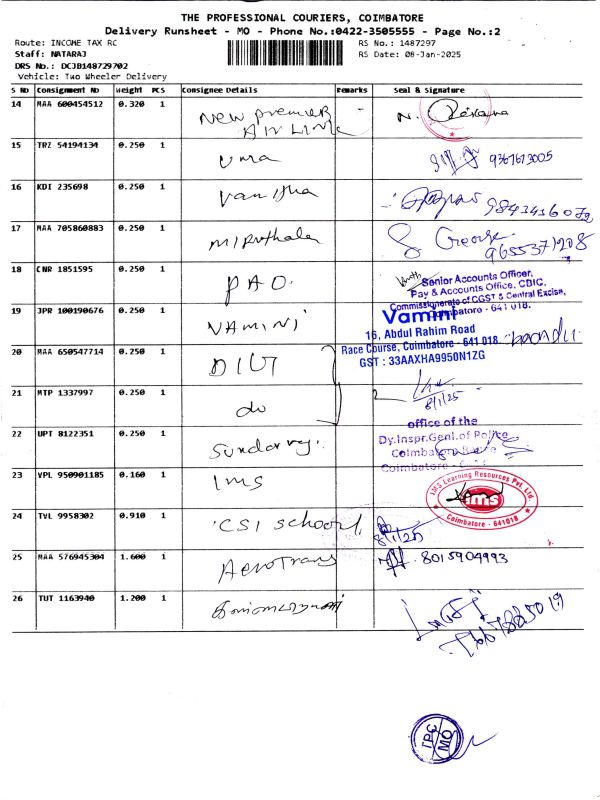 THE PROFESSIONAL COURIERS, COIMBATORE
Delivery Runsheet - MO - Phone No.:0422-3505555 - Page No.:2
Route: INCOME TAX RC
RS No.: 1487297
Staff: NATARAJ
RS Date: 08-Jan-2025
DRS No.: DCJB148729702
Vehicle: Two Wheeler Delivery
S No Consignment No Weight PCS Consignee Details Remarks Seal & Signature
14 MAA 600454512 0.320 1 New Premier AIRLINK N.
15 TRZ 54194134 0.250 1 Uma 9367613005
16 KDI 235698 0.250 1 Vanisha 9843416072
17 MAA 705860883 0.250 1 Miruthala George 9655371208
18 CNR 1851595 0.250 1 PAO.
Senior Accounts Officer,
Pay & Accounts Office, CBIC,
Commissionerate of CGST & Central Excise,
Coimbatore - 641 018.
19 JPR 100190676 0.250 1 VAMINI
Vamini
16, Abdul Rahim Road
Race Course, Coimbatore - 641 018.
GST : 33AAXHA9950N1ZG
20 MAA 650547714 0.250 1 DIG
21 MTP 1337997 0.250 1 do 8/1/25
22 UPT 8122351 0.250 1
office of the
Dy.Inspr.Genl.of Police
Coimbatore
Coimbatore -
23 VPL 950901185 0.160 1 IMS
IMS Learning Resources Pvt. Ltd.
ims
Coimbatore - 641018
24 TVL 9958302 0.910 1 CSI School, 8/1/25
25 MAA 576945304 1.600 1 AeroTrans 8015904993
26 TUT 1163940 1.200 1
TPC
MO